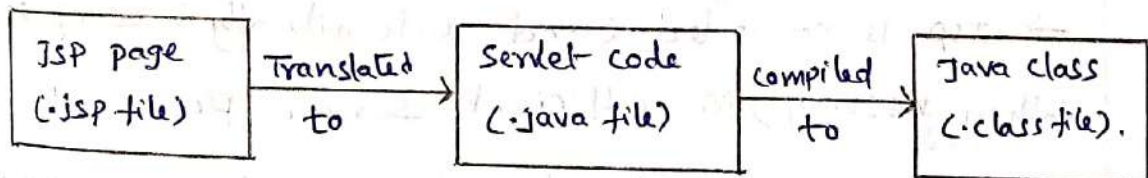 JSP page
(.jsp file)
Translated
to
Servlet code
(.java file)
compiled
to
Java class
(.class file).